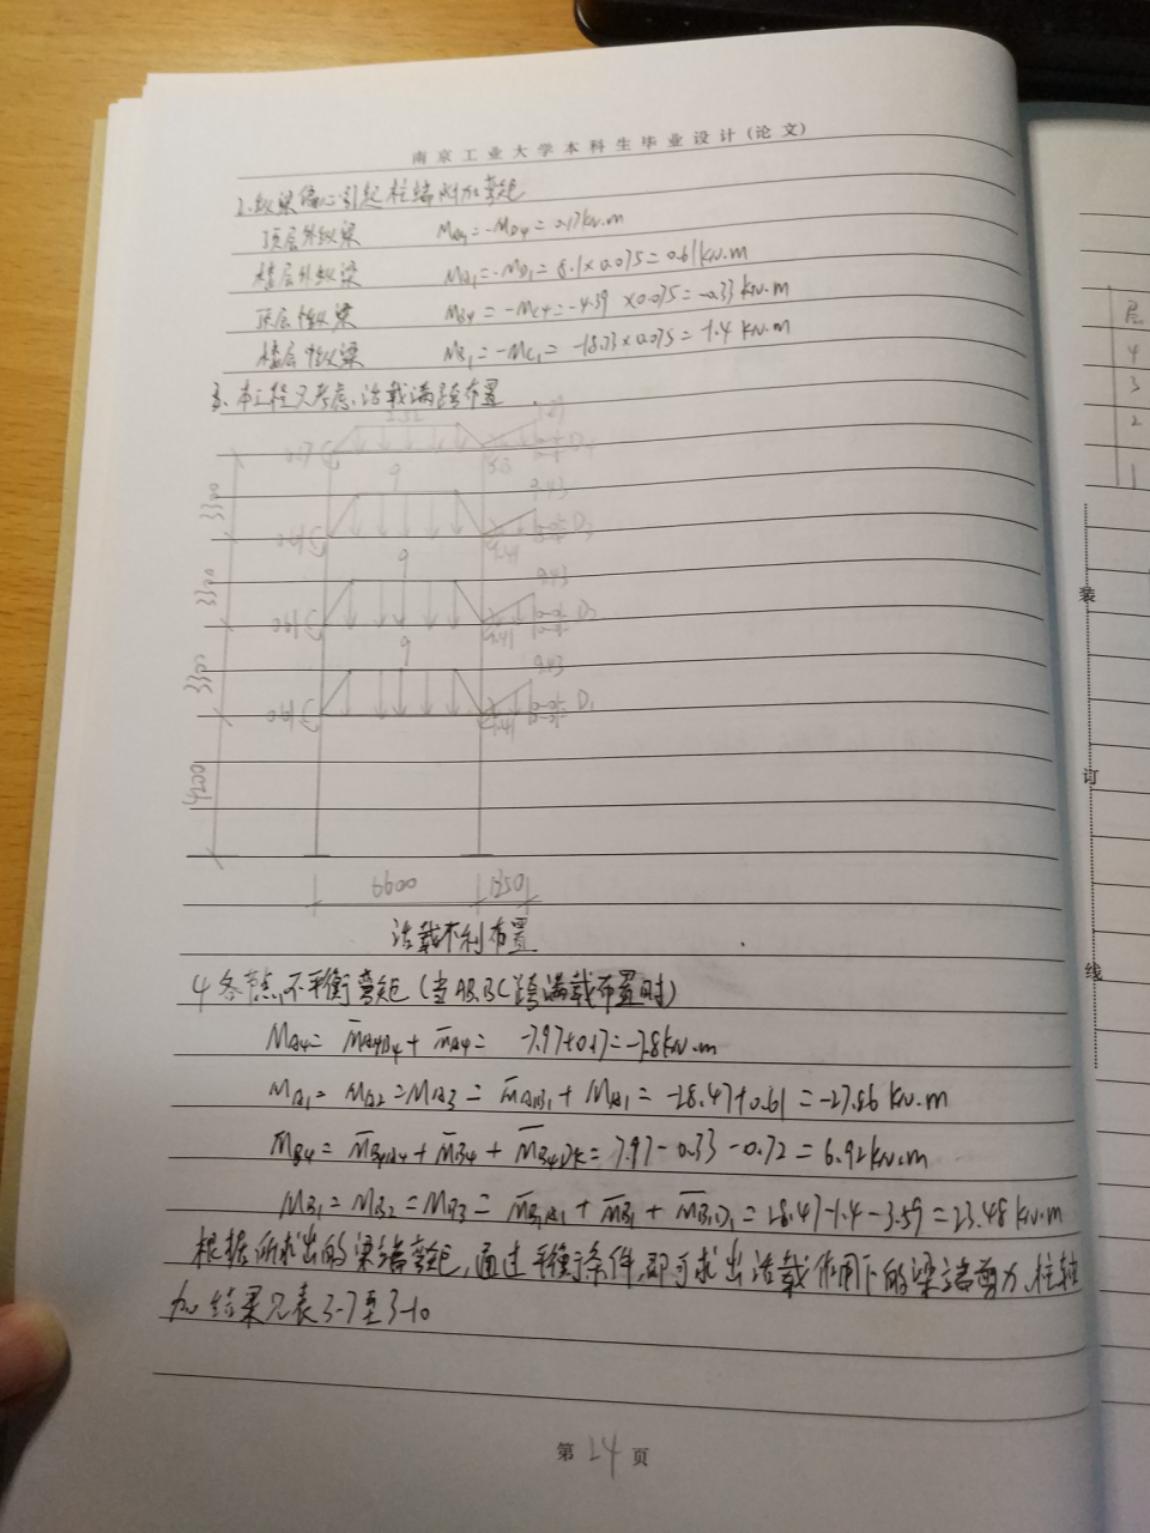 南京工业大学本科生毕业设计(论文)
2.纵梁偏心引起柱端附加弯矩
顶层外纵梁 MA4=-MD4=0.17kN.m
楼层外纵梁 MA1=-MD1=8.1×0.075=0.61kN.m
顶层中纵梁 MB4=-MC4=-4.39×0.075=-0.33kN.m
楼层中纵梁 MB1=-MC1=-18.73×0.075=-1.4kN.m
3、本工程只考虑活载满跨布置
0.17 D4
3300 9 9.43
0.61 9.41 D3
3300 9 9.43
0.61 9.41 D2
3300 9 9.43
0.61 9.41 D1
4200
6600 1350
活载不利布置
4各节点不平衡弯矩(当AB,BC跨满载布置时)
MA4=M̄A4B4+m̄A4=-7.97+0.17=-7.8kN.m
MA1=MA2=MA3=m̄A1B1+MA1=-28.47+0.61=-27.86kN.m
MB4=M̄B4A4+M̄B4+M̄B4D4=7.97-0.33-0.72=6.92kN.m
MB1=MB2=MB3=M̄B1A1+M̄B1+M̄B1D1=28.47-1.4-3.59=23.48kN.m
根据所求出的梁端弯矩,通过平衡条件,即可求出活载作用下的梁端剪力、柱轴
力,结果见表3-7至3-10
第24页
层
4
3
2
1
装
订
线